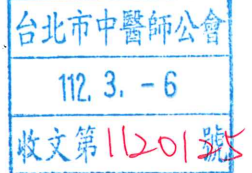 台北市中醫師公會
112. 3. -6
收文第1120125號